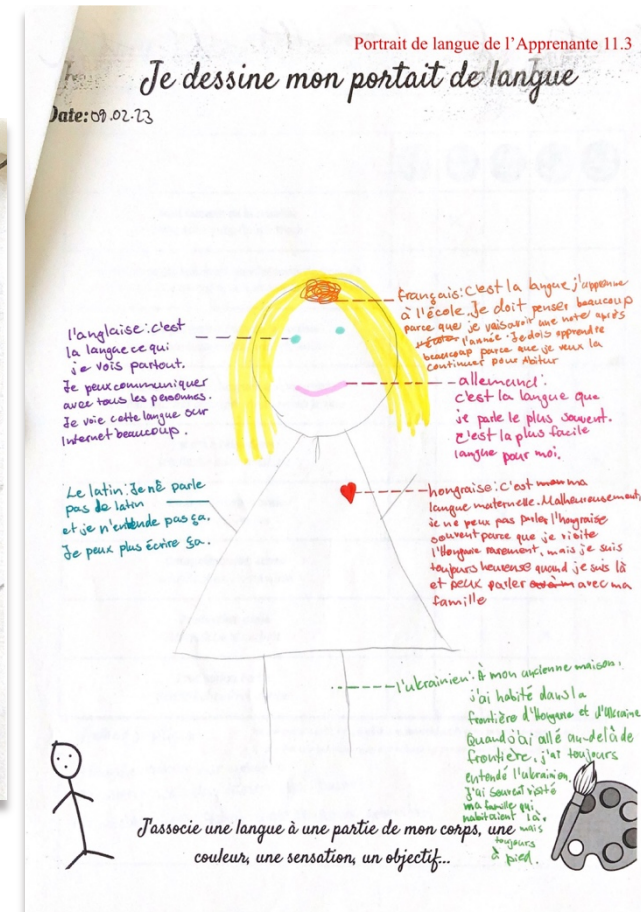 Portrait de langue de l'Apprenante 11.3
Je dessine mon portait de langue
Date: 09.02.23
français: C'est la langue j'apprenne
à l'école. Je doit penser beaucoup
parce que je vais avoir une note après
l'année. Je dois apprendre
beaucoup parce que je veux la
continuer pour Abitur
l'anglaise: c'est
la langue ce qui
je vois partout.
Je peux communiquer
avec tous les personnes.
Je voie cette langue sur
Internet beaucoup.
allemand:
c'est la langue que
je parle le plus souvent.
C'est la plus facile
langue pour moi.
Le latin: Je ne parle
pas de latin
et je n'entende pas ça.
Je peux plus écrire ça.
hongraise: C'est ma
langue maternelle. Malheureusement,
je ne peux pas parler l'hongraise
souvent parce que je visite
l'Hongrie rarement, mais je suis
toujours heureuse quand je suis là
et peux parler avec ma
famille
l'ukrainien: À mon ancienne maison,
j'ai habité dans la
frontière d'Hongrie et d'Ukraine
Quand j'ai allé au-delà de
frontière, j'ai toujours
entendé l'ukrainien.
J'ai souvent visité
ma famille qui
habitaient là,
mais
toujours
à pied.
J'associe une langue à une partie de mon corps, une
couleur, une sensation, un objectif...